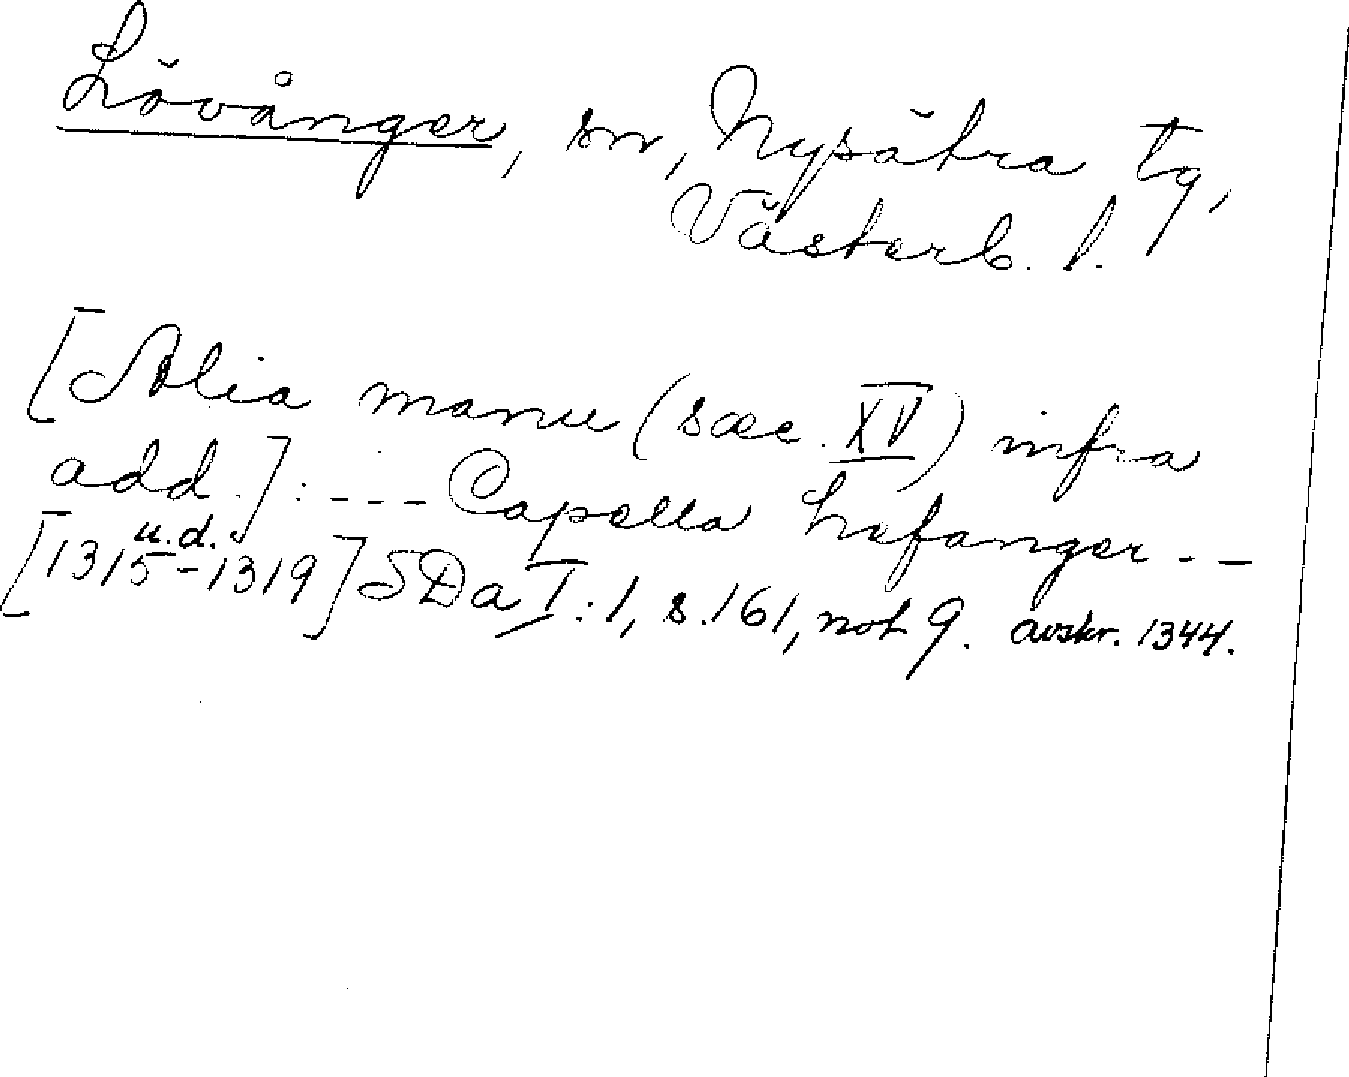 Lövånger, sn, Nysätra tg,
Västerb. l.
[Alia manu (sæc. XV) infra
add.]: --- Capella Lefanger --
u.d.
[1315-1319] SDa I:1, s. 161, not 9. avskr. 1344.